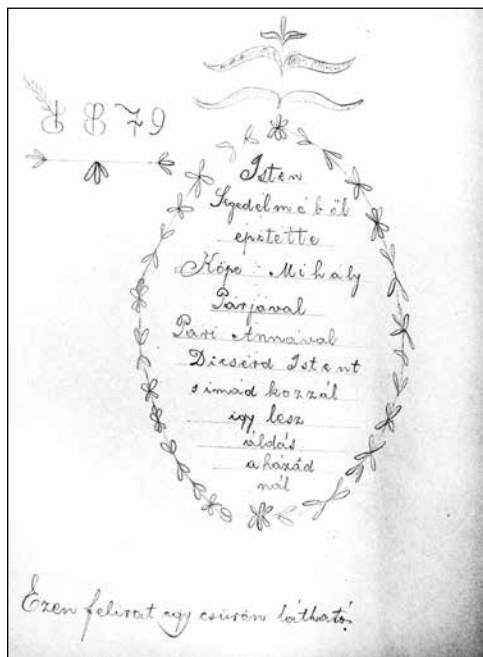 1879
Isten
Segedelméből
epitette
Köpe Mihály
Párjával
Pari Annával
Dicsérd Istent
s imád kozzál
igy lesz
áldás
a házád
nál
Ezen felirat egy csürön látható.